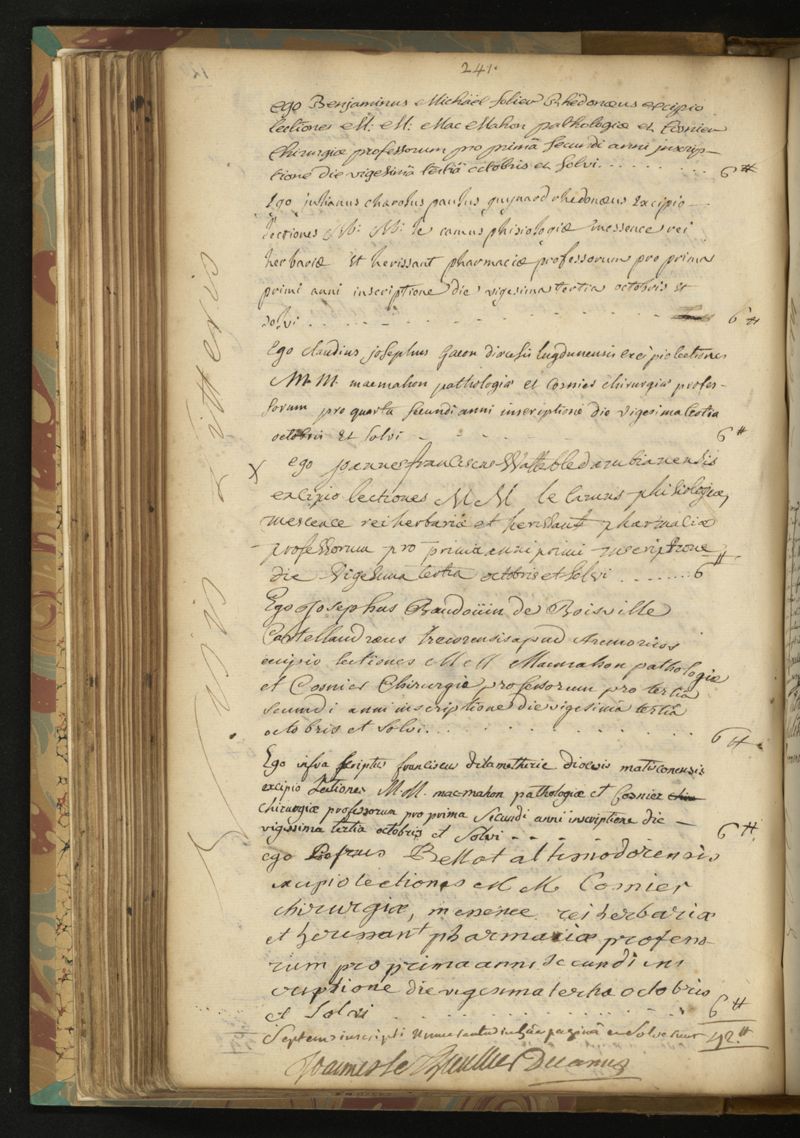 241.
Ego Benjaminus Michäel Solier Rhedonæus excipio
lectiones M: M: Mac Mahon pathologiæ et Cosnier
Chirurgiæ professorum pro primâ secundi anni inscrip-
tione die vigesimâ tertiâ octobris et solvi......... 6 ₶
Ego julianus charolus paulus guynard rhedonæus Excipio -
lectiones M: M: le camus phisiologiæ messence rei
herbariæ Et herissant pharmaciæ professorum pro prima
primi anni inscriptione die vigesima tertia octobris Et
solvi . . . . . . . . . 6 ₶
Ego claudius josephus Gacon diœcesis lugdunensis excipio lectiones
M M. macmahon pathologiæ et Cosnier chirurgiæ profes-
sorum pro quarta secundi anni inscriptione die vigesima tertia
octobris Et solvi - . . . 6 ₶
X ego joannes franciscus Wattebled ambianensis
excipio lectiones M M le Camus phisiologiæ,
mescence rei herbariæ et herissant pharmaciæ
- professorum pro prima anni primi inscriptione
die vigesima tertia octobris et solvi ....... 6 ₶
Ego Josephus Baudoüin de Boisville
Castellaudræus trecorensis apud Aremoricos
excipio lectiones M M Macmahon pathologiæ
et Cosnier Chirurgiæ professorum pro tertiâ
secundi anni inscriptione die vigesima tertia
octobris et solvi. . . . . . . . . 6 ₶
Ego infra scriptus franciscus delametherie diœcesis matisconensis
excipio Lectiones M. M. mac-mahon pathologiæ et Cosnier
chirurgiæ professorum pro prima secundi anni inscriptione die -
vigesima tertia octobris et solvi - - - - 6 ₶
ego Bellot altissiodorensis
excipio lectiones M M. Cosnier
chirurgiæ, messence rei herbariæ
et herissant pharmaciæ professo-
rum pro prima anni secundi ins
criptione die vigesima tertia octobris
et solvi . . . . . . . . 6 ₶
Septem inscripti in hâc paginâ 42. ₶
Joannes le Thieullier Decanus